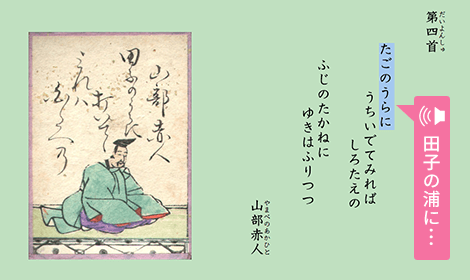 第四首
だいよんしゅ
たごのうらに
うちいでてみれば
しろたえの
ふじのたかねに
ゆきはふりつつ
山部赤人
やまべのあかひと
田子の浦に…
山部赤人